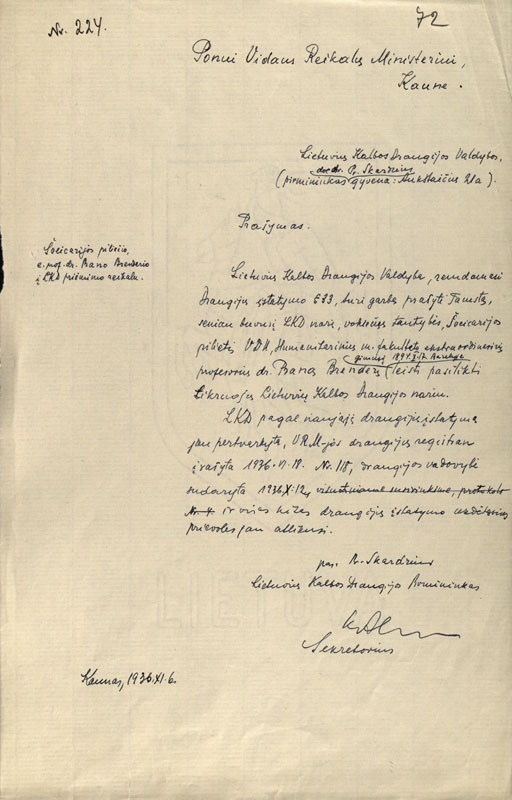 Nr. 224.
72
Ponui Vidaus Reikalų Ministeriui,
Kaune.
Lietuvių Kalbos Draugijos Valdybos,
doc. dr. Pr. Skardžius
(pirmininkas gyvena: Aukštaičių 21a).
Prašymas.
Šveicarijos piliečio,
e. prof. dr. Prano Brenderio
į LKD priėmimo reikalu.
Lietuvių Kalbos Draugijos Valdyba, remdamasi
Draugijų įstatymo § 33, turi garbę prašyti Tamstą,
seniau buvusį LKD narį, vokiečių tautybės, Šveicarijos
pilietį, VDU, Humanitarinių m. fakulteto ekstraordinarinį
gimusį 1894
profesorių dr. Praną Brenderį leisti pasilikti
tikruoju Lietuvių Kalbos Draugijos nariu.
LKD pagal naująją draugijų įstatymą
jau pertvarkyta, VRM-jos draugijų registran
įrašyta 1936.VI.18. Nr. 118, draugijos vadovybė
sudaryta 1936.X.12, visuotiniame susirinkime, protokolo
Nr. ir visas kitas draugijų įstatymo
prievoles jau atlikusi.
pas. Pr. Skardžius
Lietuvių Kalbos Draugijos Pirmininkas
Sekretorius
Kaunas, 1936.XI.6.